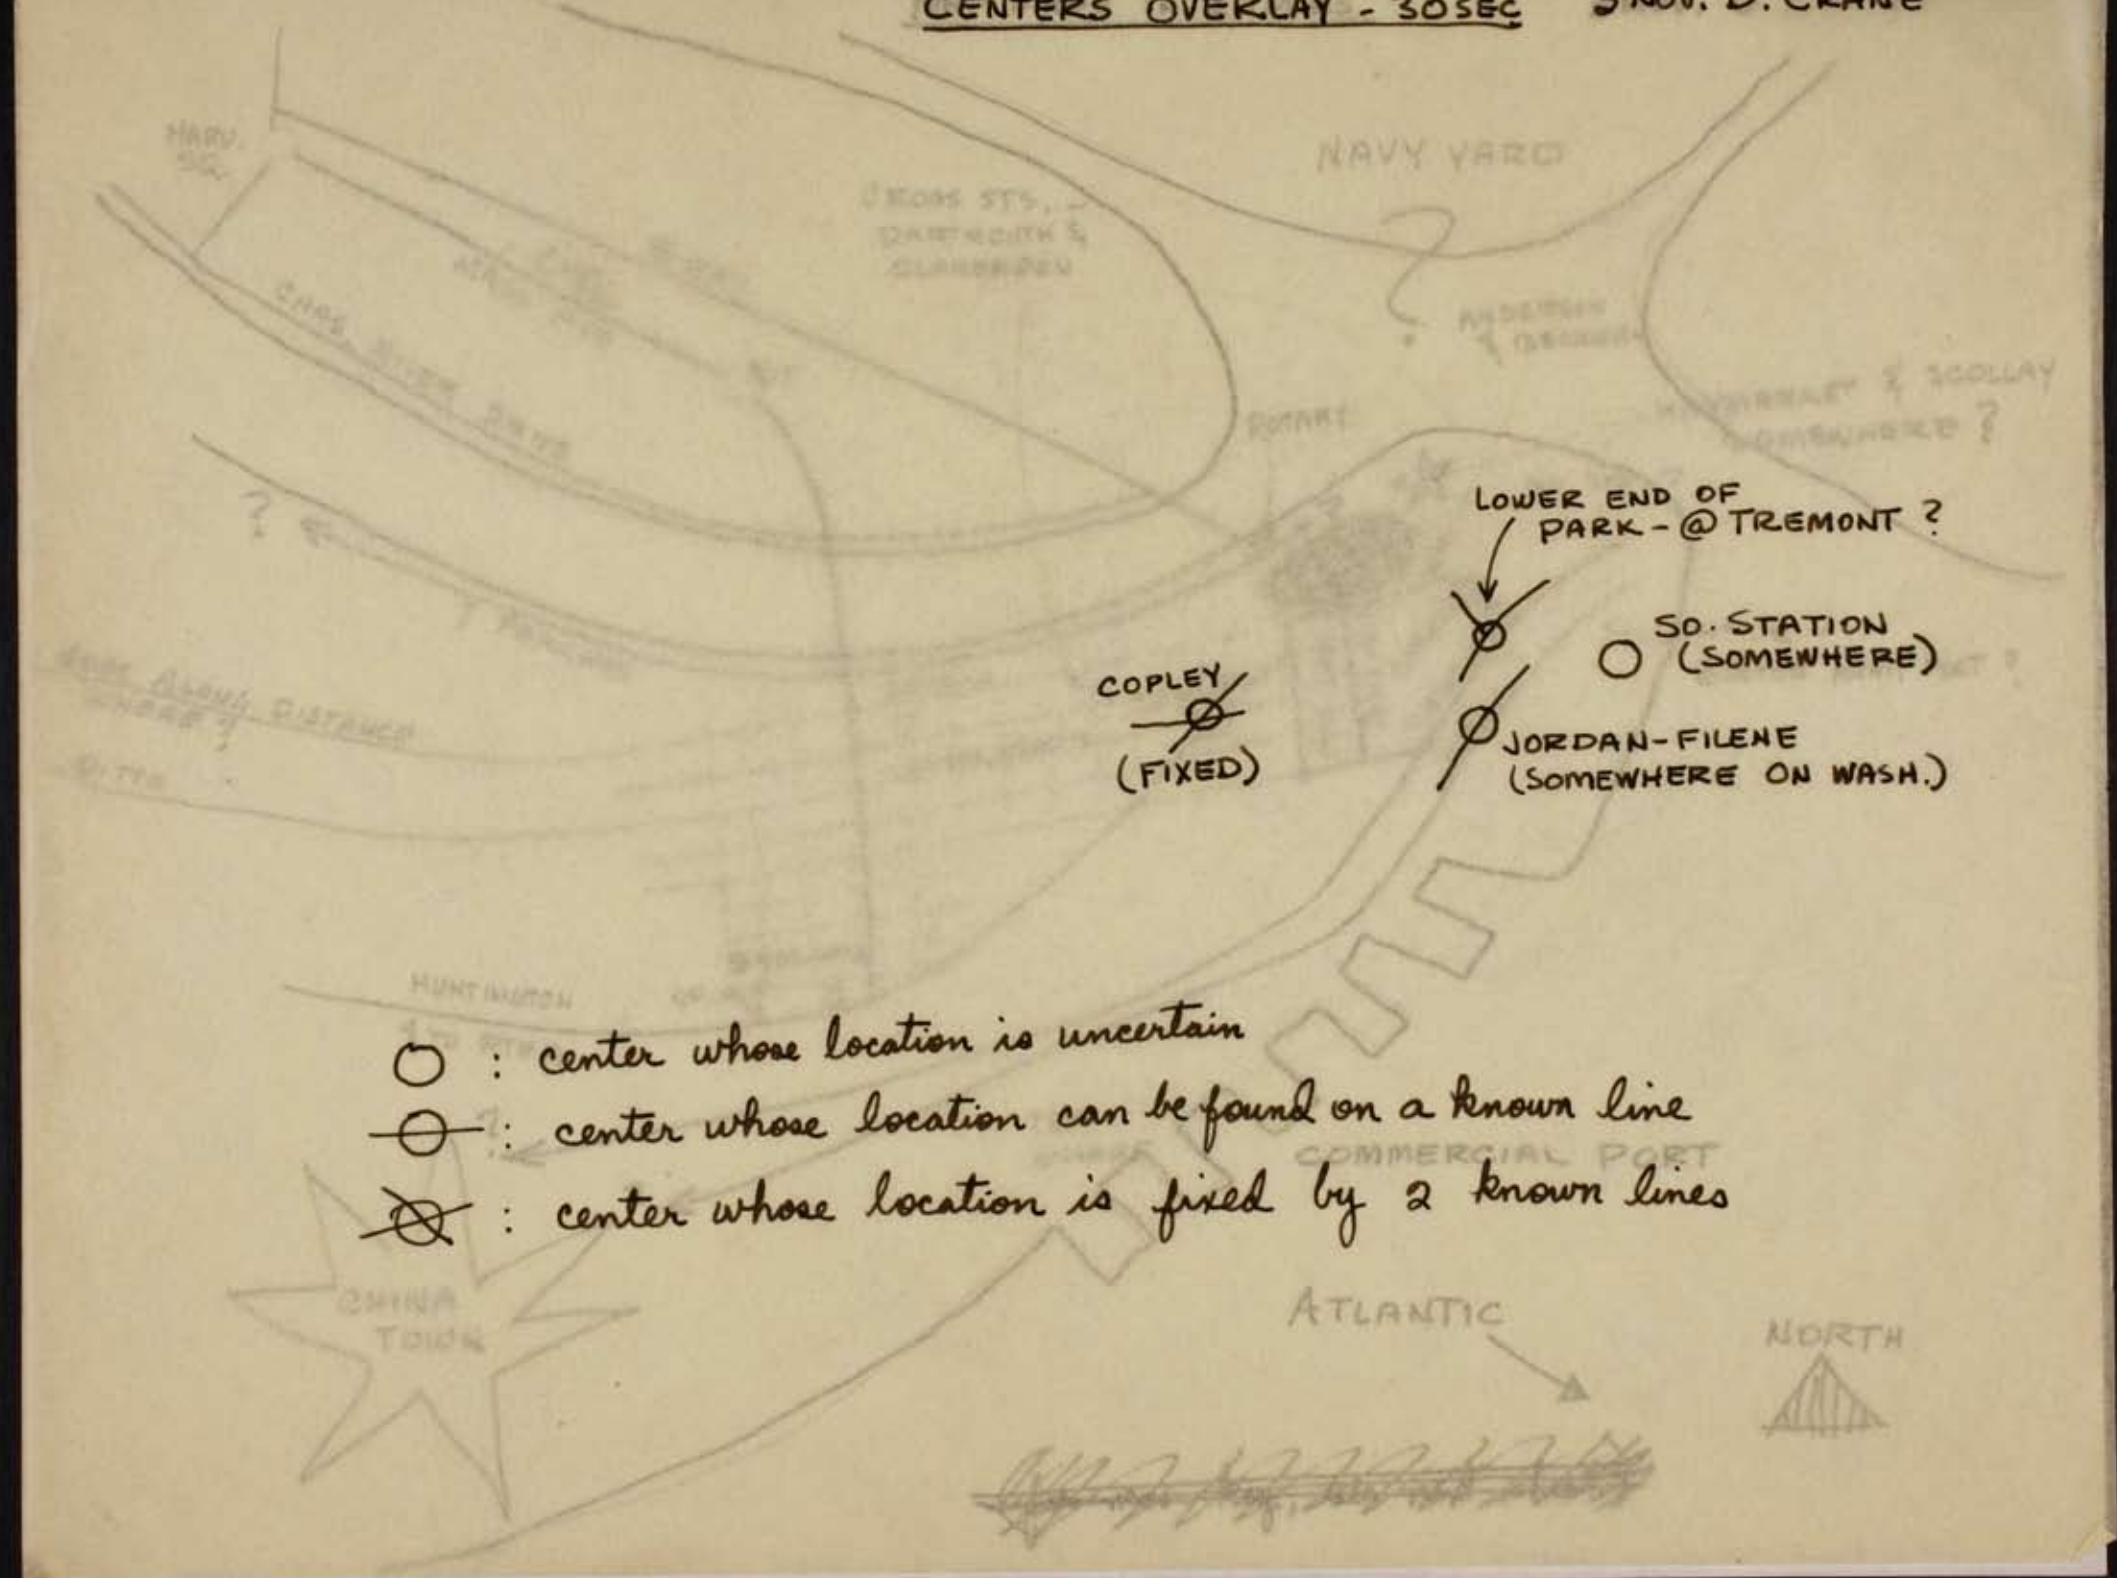 CENTERS OVERLAY - 30SEC 5 NOV. D. CRANE
HARV.
SQ.
NAVY YARD
CROSS STS.
DARTMOUTH &
CLARENDON
?
ANDERSON
CHAS. RIVER
ROTARY
& SCOLLAY
SOMEWHERE ?
LOWER END OF
PARK - @ TREMONT ?
?
SO. STATION
(SOMEWHERE)
COPLEY
(FIXED)
JORDAN-FILENE
(SOMEWHERE ON WASH.)
ALONG DISTANCE
WHERE ?
DITTO
HUNTINGTON
O : center whose location is uncertain
: center whose location can be found on a known line
COMMERCIAL PORT
: center whose location is fixed by 2 known lines
CHINA
TOWN
ATLANTIC
NORTH